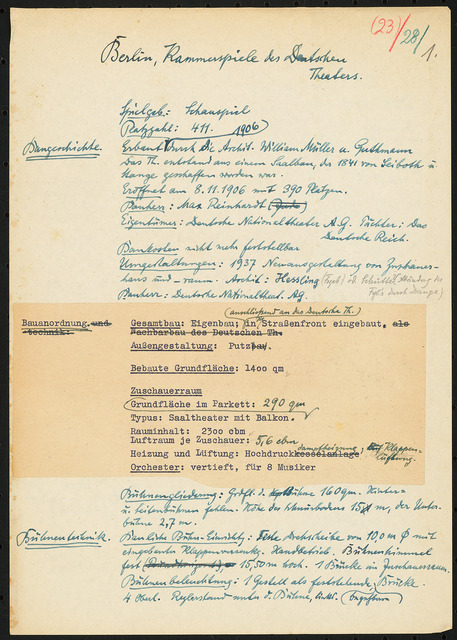 (23)/28/1.
Berlin, Kammerspiele des Deutschen
Theaters.
Spielgeb.: Schauspiel
Platzzahl: 411.
Baugeschichte. Erbaut 1906 durch die Archit. William Müller u.
Das Th. entstand aus einem Saalbau, der 1841 von u.
Hange geschaffen worden war.
Eröffnet am 8.11.1906 mit 390 Plätzen.
Bauherr: Max Reinhardt
Eigentümer: Deutsche Nationaltheater A.G. Pächter: Das
Deutsche Reich.
Baukosten nicht mehr feststellbar
Umgestaltungen: 1937 Neuausgestaltung von Zuschauer-
haus und -raum. Archit:
Bauherr: Deutsche Nationaltheat. AG.
(anschließend an das Deutsche Th.)
Bauanordnung und Gesamtbau: Eigenbau; in Straßenfront eingebaut, als
-technik: Nachbarbau des Deutschen Th.
Außengestaltung: Putzbau.
Bebaute Grundfläche: 1400 qm
Zuschauerraum
Grundfläche im Parkett: 290 qm
Typus: Saaltheater mit Balkon.
Rauminhalt: 2300 cbm
Luftraum je Zuschauer: 5,6 cbm
Heizung und Lüftung: Hochdruckkesselanlage dampfheizung, Klappen-
lüftung.
Orchester: vertieft, für 8 Musiker
Bühnengliederung: Grdfl. d. Bühne 160 qm. Hinter-
u. Seitenbühnen fehlen. Höhe des Schnürbodens 15,1 m, der Unter-
bühne 2,7 m.
Bühnentechnik. Bauliche Bühn.-Einrichtg: Feste Drehscheibe von 10,0 m Ø mit
eingebauter Klappversenkg. Handbetrieb. Bühnenhimmel
fest 15,50 m hoch. 1 Brücke im Zuschauerraum.
Bühnenbeleuchtung: 1 Gestell als feststehende Brücke.
4 Oberl. Reglerstand unter d. Bühne, links. (begehbar)